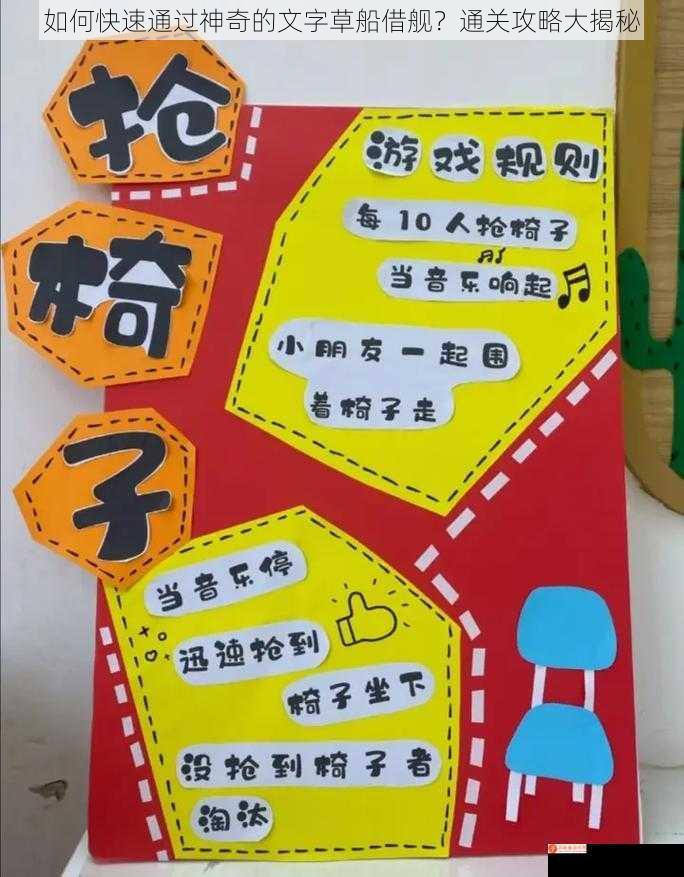 如何快速通过神奇的文字草船借舰？通关攻略大揭秘
抢
椅
子
游戏规则
每10人抢椅子
当音乐响起
小朋友一起围
着椅子走
当音乐停
迅速抢到
椅子坐下
没抢到椅子者
淘汰